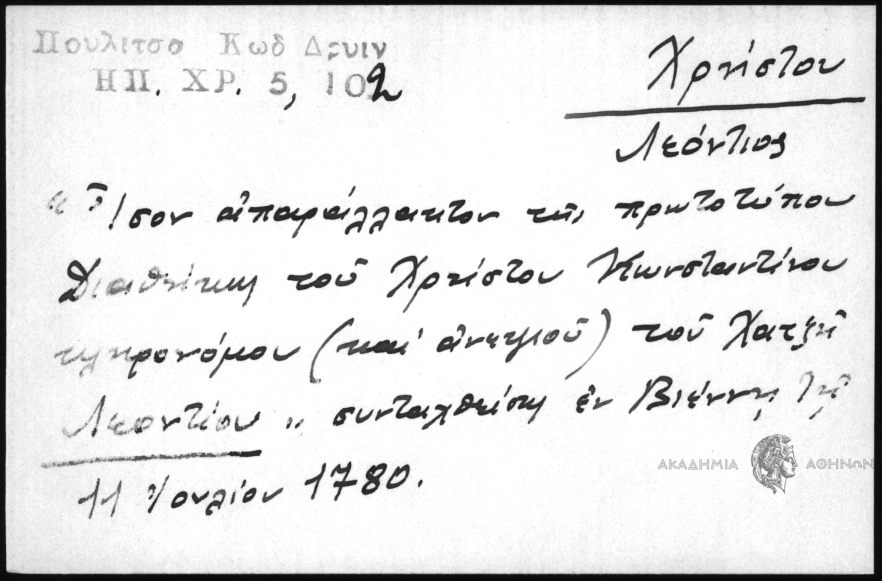 Πουλιτσα Κωδ Δρυιν
ΗΠ. ΧΡ. 5, 102
Χρήστου
Λεόντιος
« Ἴσον ἀπαράλλακτον τῆς πρωτοτύπου
Διαθήκης τοῦ Χρήστου Κωνσταντίνου
κληρονόμου (καὶ ἀνεψιοῦ) τοῦ Χατζῆ
Λεοντίου „ συνταχθείσης ἐν Βιέννῃ τῇ
11 Ἰουλίου 1780.
ΑΚΑΔΗΜΙΑ ΑΘΗΝΩΝ